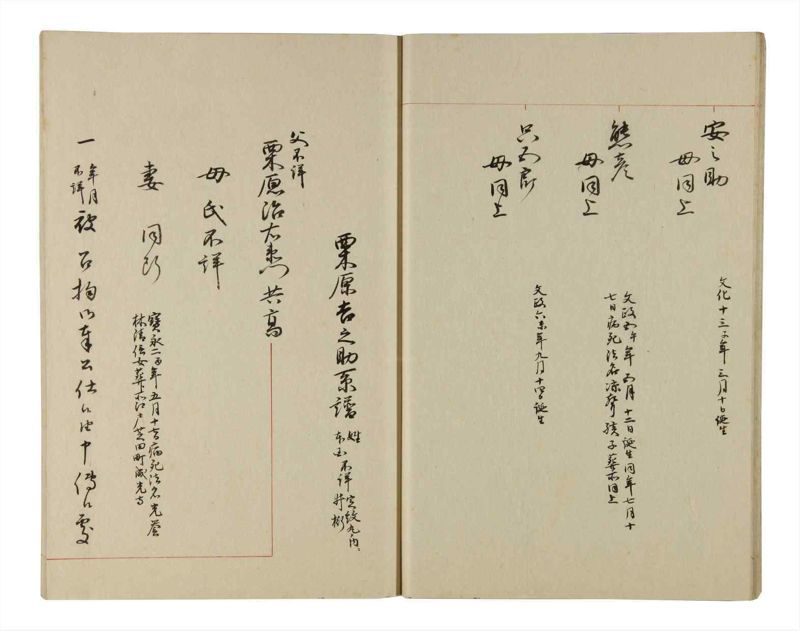 安之助
母同上
文化十三子年三月十日誕生
熊彦
母同上
文政五午年五月十二日誕生同年七月十
七日病死法名凉聲孩子葬所同上
只五郎
母同上
文政六未年九月十四日誕生
栗原吉之助系譜
姓
本国不詳
定紋丸ノ内ニ
父不詳
栗原治右衛門共高
母氏不詳
妻同断
寳永二酉年五月十七日病死法名光誉
林清信女葬所江戸芝田町
一年月不詳被召拘御奉公仕候由申傳候處